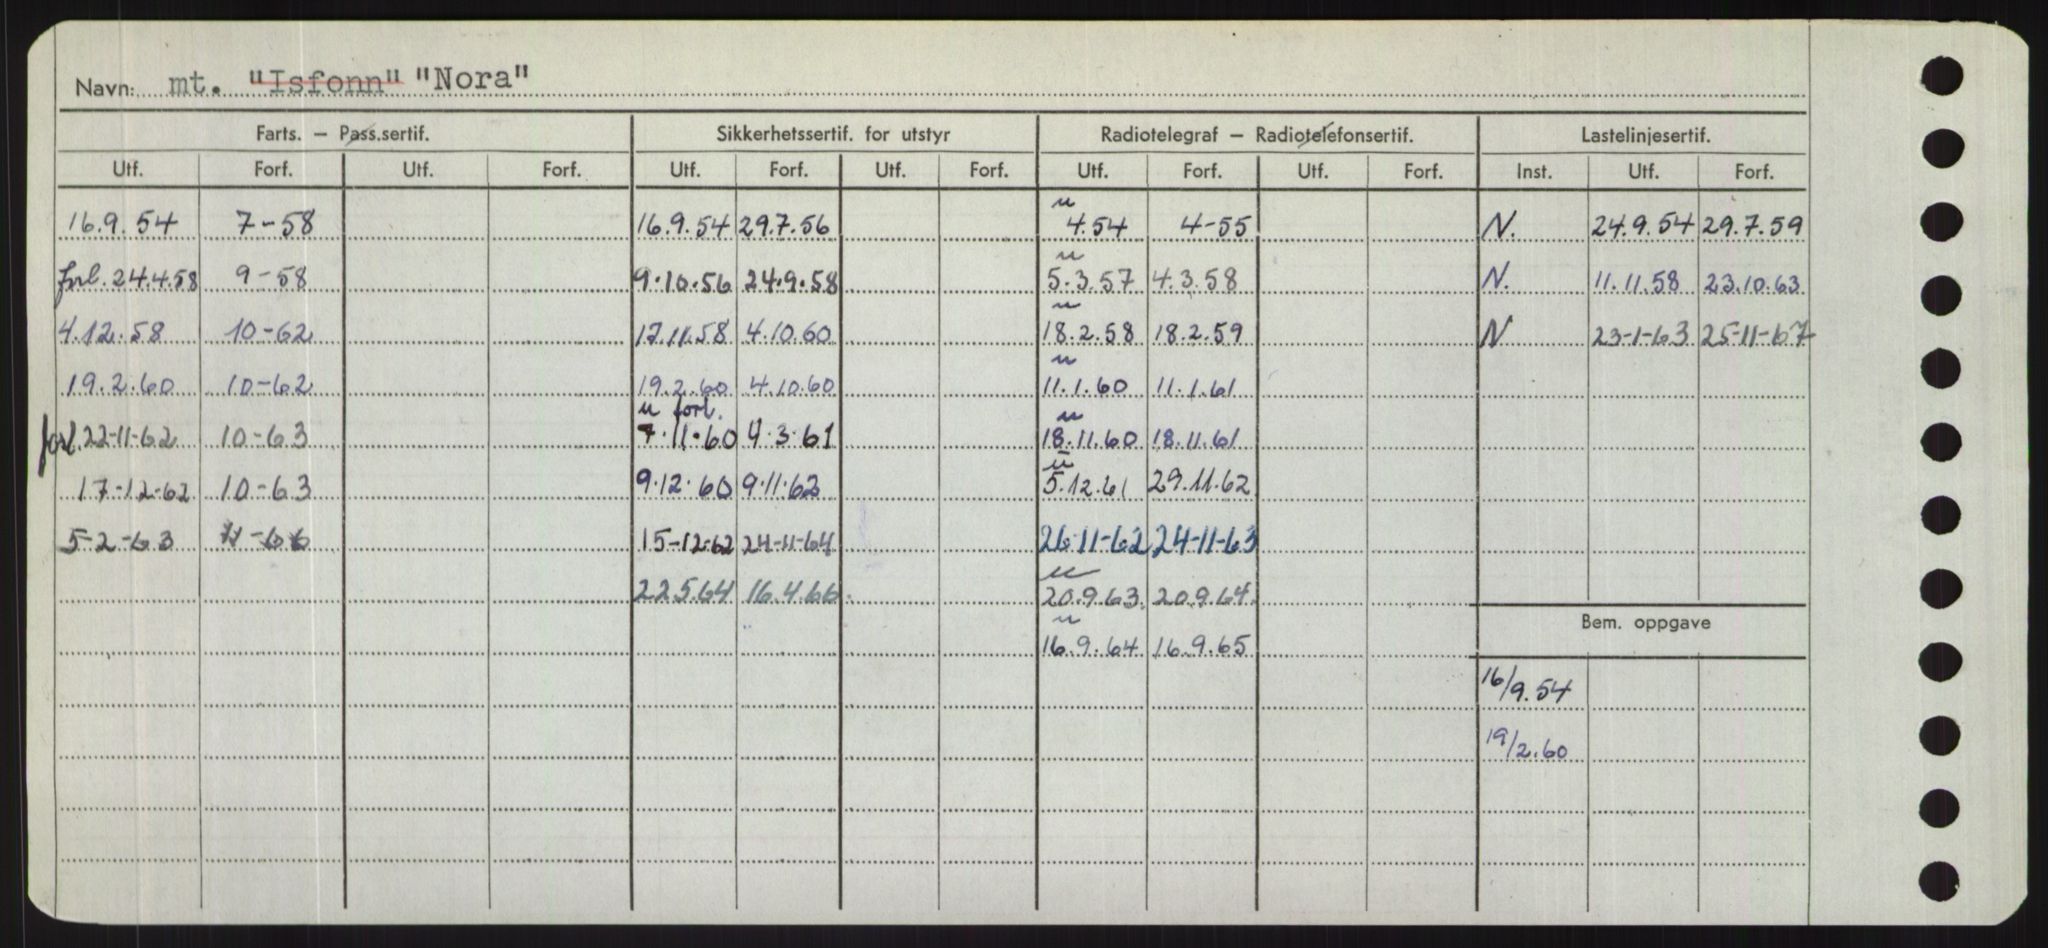 Navn: mt. "Isfonn" "Nora"
Farts. — Pass.sertif. Sikkerhetssertif. for utstyr Radiotelegraf — Radiotelefonsertif. Lastelinjesertif.
Utf. Forf. Utf. Forf. Utf. Forf. Utf. Forf. Utf. Forf. Utf. Forf. Inst. Utf. Forf.
u
16.9.54 7-58 16.9.54 29.7.56 4.54 4-55 N. 24.9.54 29.7.59
u
forl. 24.4.58 9-58 9.10.56 24.9.58 5.3.57 4.3.58 N. 11.11.58 23.10.63
u
4.12.58 10-62 17.11.58 4.10.60 18.2.58 18.2.59 N 23-1-63 25-11-67
u
19.2.60 10-62 19.2.60 4.10.60 11.1.60 11.1.61
u forl. u
forl. 22-11-62 10-63 7.11.60 4.3.61 18.11.60 18.11.61
u
17-12-62 10-63 9.12.60 9.11.62 5.12.61 29.11.62
5-2-63 11-66 15-12-62 24-11-64 26-11-62 24-11-63
u
22.5.64 16.4.66. 20.9.63. 20.9.64.
Bem. oppgave
u
16.9.64 16.9.65
16/9.54
19/2.60